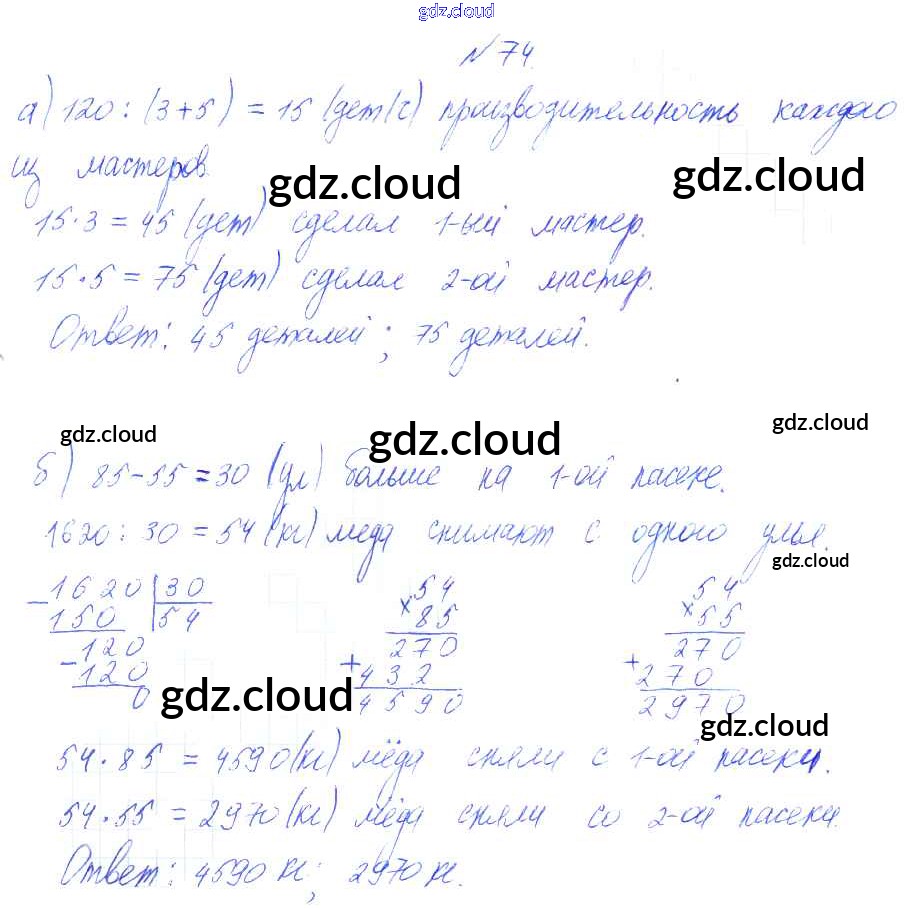 gdz.cloud
№ 74.
а) 120 : (3+5) = 15 (дет/ч) производительность каждого
из мастеров.
gdz.cloud gdz.cloud
15·3 = 45 (дет) сделал 1-ый мастер.
15·5 = 75 (дет) сделал 2-ой мастер.
Ответ: 45 деталей; 75 деталей.
gdz.cloud gdz.cloud gdz.cloud
б) 85-55 = 30 (ул) больше на 1-ой пасеке.
1620 : 30 = 54 (кг) меда снимают с одного улья.
gdz.cloud
-1620 |30 54 54
150 54 ×85 ×55
-120 270 270
120 +432 +270
0 4590 2970
gdz.cloud gdz.cloud
54·85 = 4590 (кг) мёда сняли с 1-ой пасеки.
54·55 = 2970 (кг) мёда сняли со 2-ой пасеки.
Ответ: 4590 кг; 2970 кг.